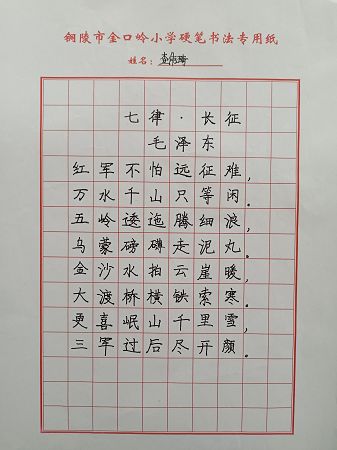 铜陵市金口岭小学硬笔书法专用纸
姓名：查彤琦
七律·长征
毛泽东
红军不怕远征难，
万水千山只等闲。
五岭逶迤腾细浪，
乌蒙磅礴走泥丸。
金沙水拍云崖暖，
大渡桥横铁索寒。
更喜岷山千里雪，
三军过后尽开颜。